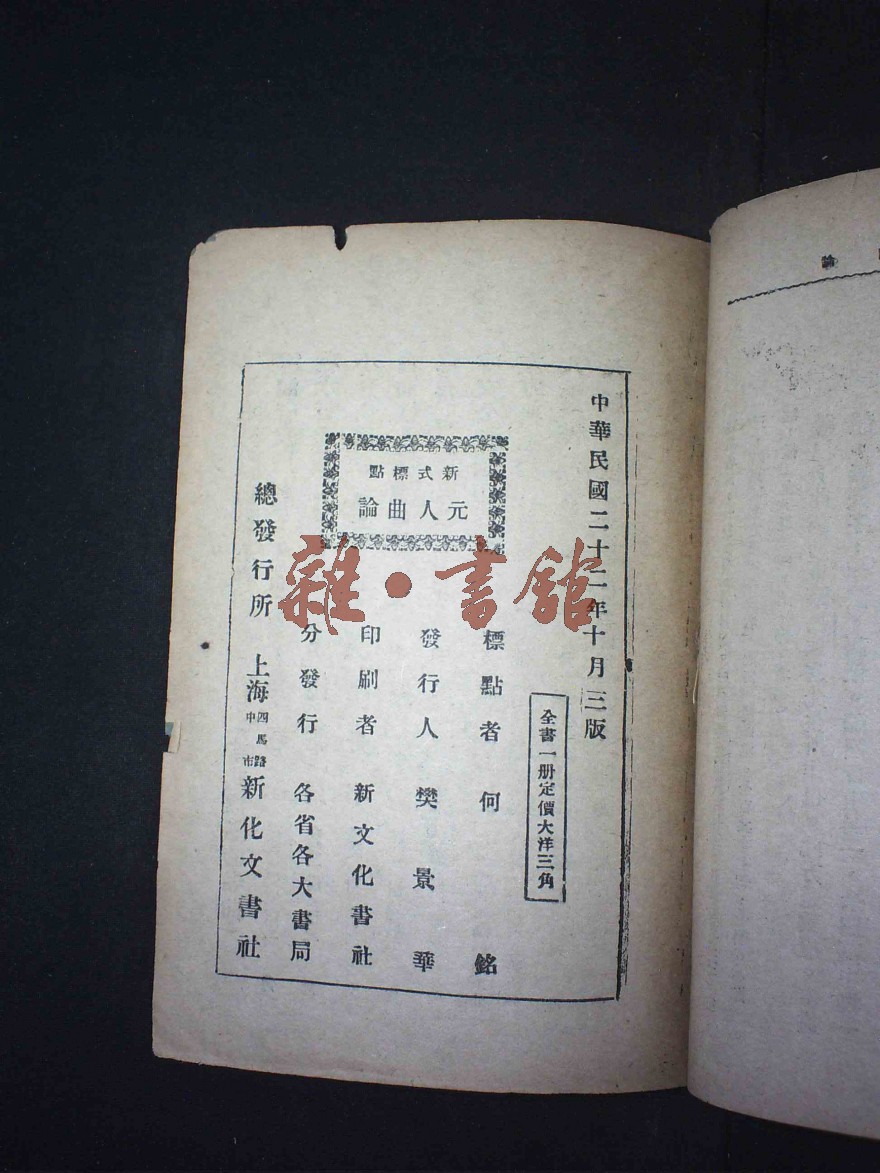 中華民國二十二年十月三版
全書一册定價大洋三角
新式標點
元人曲論
標點者何銘
發行人樊景華
印刷者新文化書社
分發行各省各大書局
總發行所上海四馬路中市新化文書社
雜·書館
論